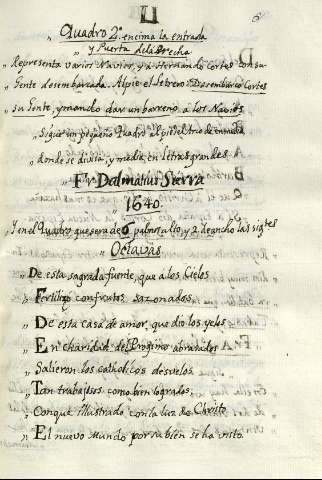 LI
6
Quadro 2º encima la entrada
y Puerta dela Drecha
„ Representa varios Navios, y a Hernando Cortes con su
„ Gente desembarcada. Al pie el Letrero: Desembarco Cortes
„ su Gente, y mando dar un barreno a los Navios.
„ Sigue un pequeño Quadro al pie del Arco de en medio
„ donde se divisa, y medía en Letras grandes
„ Fr. Dalmatius Sierra
„ 1640.
„ Y en el Quadro que sera de 6 palmos alto y 2 de ancho las sigtes
„ Octavas
„ De esta sagrada fuente, que a los Cielos
„ Fertilizo con frutos sazonados,
„ De esta casa de amor, que dio los yelos
„ En charidad del Progimo abrasados
„ Salieron los catholicos desvelos
„ Tan trabajosos, como bien logrados;
„ Con que illustrado, con la luz de Christo
„ El nuevo Mundo por su bien se ha visto.